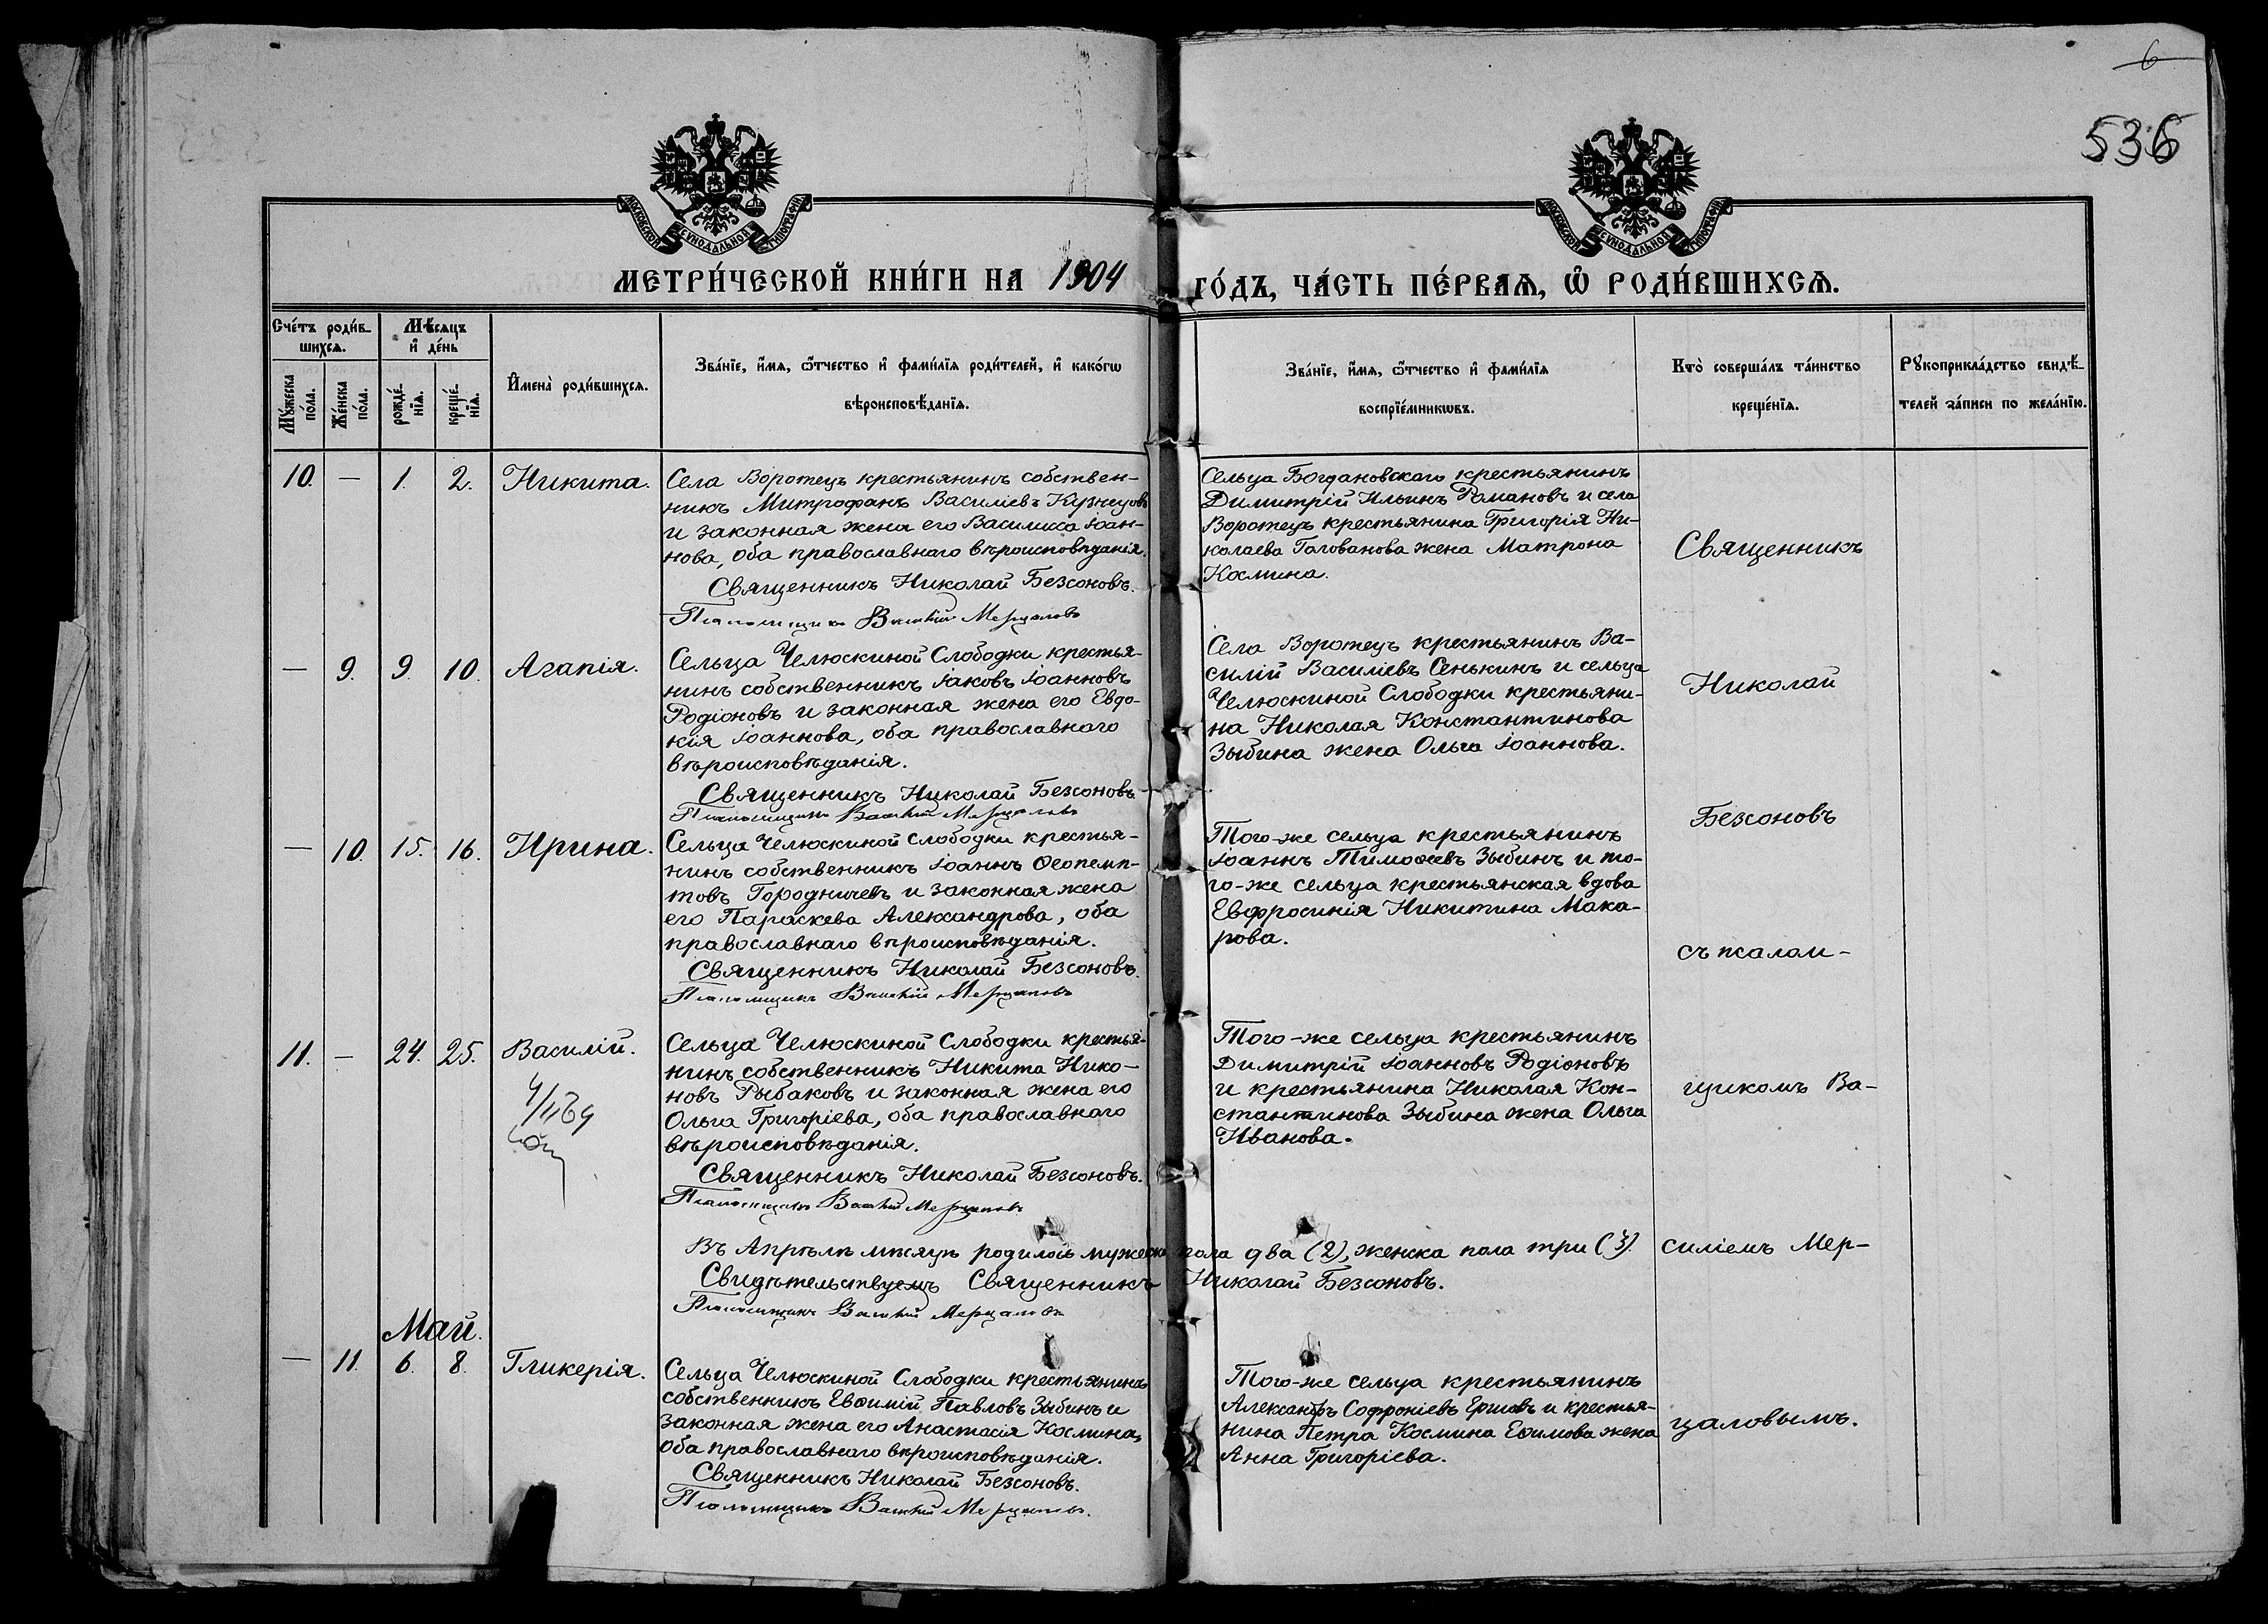 6
536
МОСКОВСКОЙ СѴНОДАЛЬНОЙ ТИПОГРАФІИ
МОСКОВСКОЙ СѴНОДАЛЬНОЙ ТИПОГРАФІИ
МЕТРИ́ЧЕСКОЙ КНИ́ГИ НА 1904 ГО́ДЪ, ЧА́СТЬ ПЕ́РВАѦ, Ѽ РОДИ́ВШИХСѦ.
Сче́тъ роди́в-
шихсѧ.
Мꙋ́жеска
по́ла.
Же́нска
по́ла.
Мѣ́сѧцъ
и҆ де́нь
рожде́-
нїѧ.
креще́-
нїѧ.
И҆мена̀ роди́вшихсѧ.
Зва́нїе, и҆́мѧ, ѻ҆́тчество и҆ фами́лїѧ роди́телей, и҆ како́гѡ
вѣроисповѣ́данїѧ.
Зва́нїе, и҆́мѧ, ѻ҆́тчество и҆ фами́лїѧ
воспрїе́мникѡвъ.
Кто̀ соверша́лъ та́инство
креще́нїѧ.
Рꙋкоприкла́дство свидѣ́-
телей за́писи по жела́нїю.
10. — 1. 2. Никита.
Села Воротецъ крестьянинъ собствен-
никъ Митрофанъ Василіевъ Кузнецовъ
и законная жена его Василисса Іоан-
нова, оба православнаго вѣроисповѣданія.
Священникъ Николай Безсоновъ.
Псаломщикъ Василій Мерцаловъ
Сельца Богдановскаго крестьянинъ
Димитрій Ильинъ Романовъ и села
Воротецъ крестьянина Григорія Ни-
колаева Голованова жена Матрона
Космина.
— 9. 9. 10. Агапія.
Сельца Челюскиной Слободки крестья-
нинъ собственникъ Іаковъ Іоанновъ
Родіоновъ и законная жена его Евдо-
кія Іоаннова, оба православнаго
вѣроисповѣданія.
Священникъ Николай Безсоновъ
Псаломщикъ Василій Мерцаловъ
Села Воротецъ крестьянинъ Ва-
силій Василіевъ Сенькинъ и сельца
Челюскиной Слободки крестьяни-
на Николая Константинова
Зыбина жена Ольга Іоаннова.
— 10. 15. 16. Ирина.
Сельца Челюскиной Слободки крестья-
нинъ собственникъ Іоаннъ Ѳеопемп-
товъ Городничевъ и законная жена
его Параскева Александрова, оба
православнаго вѣроисповѣданія.
Священникъ Николай Безсоновъ.
Псаломщикъ Василій Мерцаловъ
Того-же сельца крестьянинъ
Іоаннъ Тимоѳеевъ Зыбинъ и то-
го-же сельца крестьянская вдова
Евфросинія Никитина Мака-
рова.
11. — 24. 25. Василій.
Сельца Челюскиной Слободки крестья-
нинъ собственникъ Никита Нико-
новъ Рыбаковъ и законная жена его
Ольга Григоріева, оба православнаго
вѣроисповѣданія.
Священникъ Николай Безсоновъ.
Псаломщикъ Василій Мерцаловъ
Того-же сельца крестьянинъ
Димитрій Іоанновъ Родіоновъ
и крестьянина Николая Кон-
стантинова Зыбина жена Ольга
Иванова.
Въ Апрѣлѣ мѣсяцѣ родилось мужеска пола два (2), женска пола три (3).
Свидѣтельствуемъ Священникъ Николай Безсоновъ.
Псаломщикъ Василій Мерцаловъ
Май.
— 11. 6. 8. Гликерія.
Сельца Челюскиной Слободки крестьянинъ
собственникъ Евѳимій Павловъ Зыбинъ и
законная жена его Анастасія Космина,
оба православнаго вѣроисповѣданія.
Священникъ Николай Безсоновъ.
Псаломщикъ Василій Мерцаловъ.
Того-же сельца крестьянинъ
Александръ Софроніевъ Ершовъ и крестья-
нина Петра Космина Еѳимова жена
Анна Григоріева.
Священникъ
Николай
Безсоновъ
съ псалом-
щикомъ Ва-
силіемъ Мер-
цаловымъ.